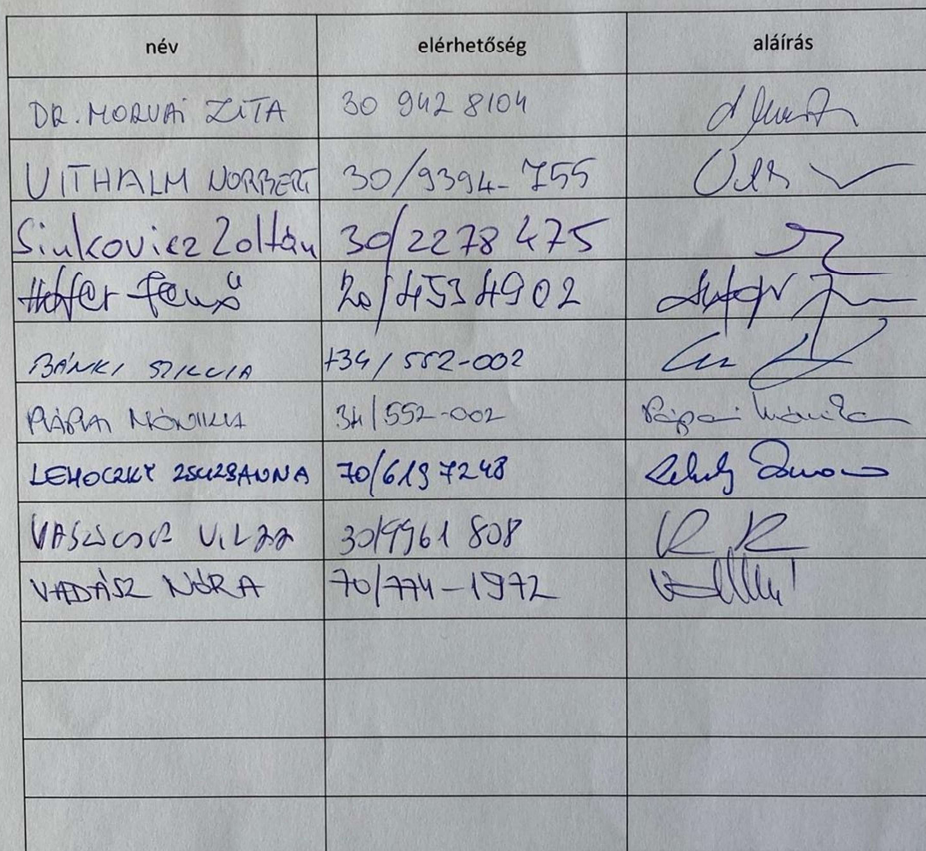 név elérhetőség aláírás
DR. MORVAI ZITA 30 942 8104
VITHALM NORBERT 30/9394-755
Sinkovicz Zoltán 30/2278 475
Hofer Jenő 20/4534902
BÁNKI SZILVIA +34/552-002
PÁPAI MÓNIKA 34/552-002 Pápai Mónika
LEHOCZKY ZSUZSANNA 70/6197248
30/9961 808
VADÁSZ NÓRA 70/774-1972